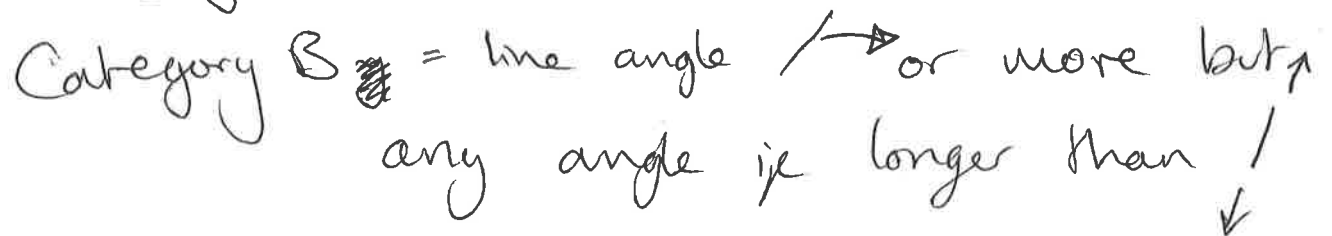 Category B = line angle / → or more but
any angle if longer than /